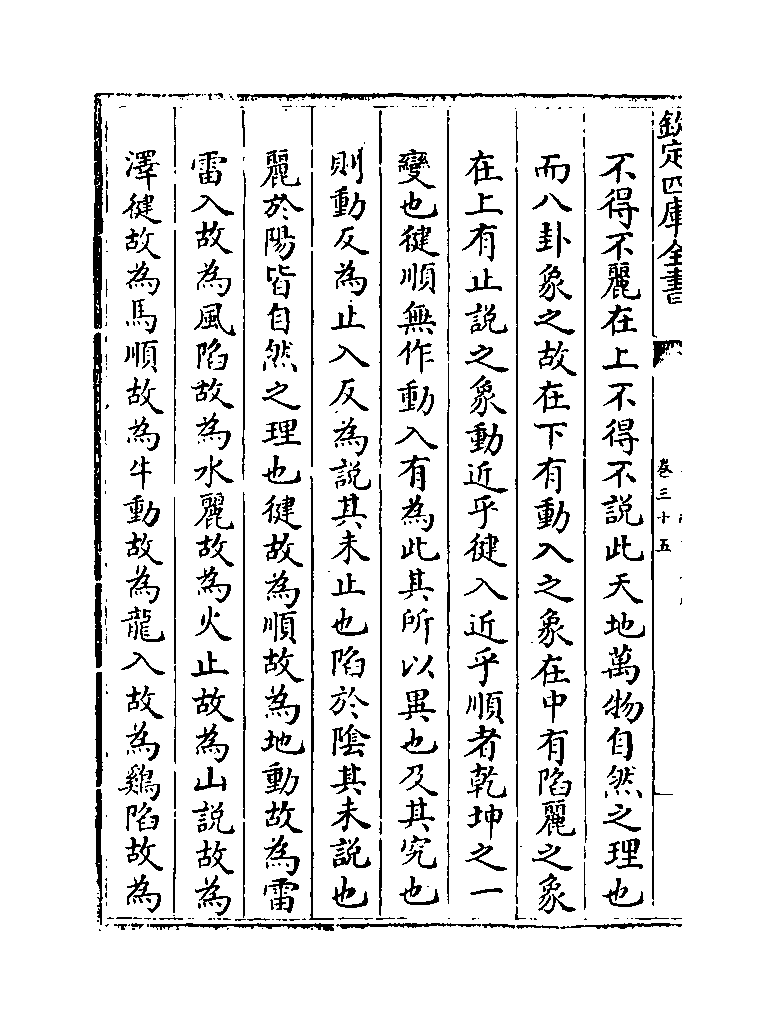 欽定四庫全書
卷三十五
不得不麗在上不得不說此天地萬物自然之理也
而八卦象之故在下有動入之象在中有陷麗之象
在上有止說之象動近乎健入近乎順者乾坤之一
變也健順無作動入有為此其所以異也及其究也
則動反為止入反為說其未止也陷於隂其未說也
麗於陽皆自然之理也健故為順故為地動故為雷
雷入故為風陷故為水麗故為火止故為山說故為
澤健故為馬順故為牛動故為龍入故為鷄陷故為